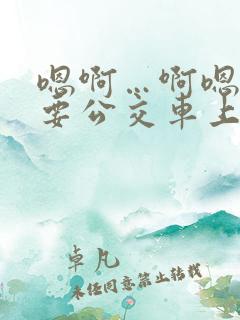 嗯啊…啊嗯
要公交车上
卓凡
未经同意禁止转载